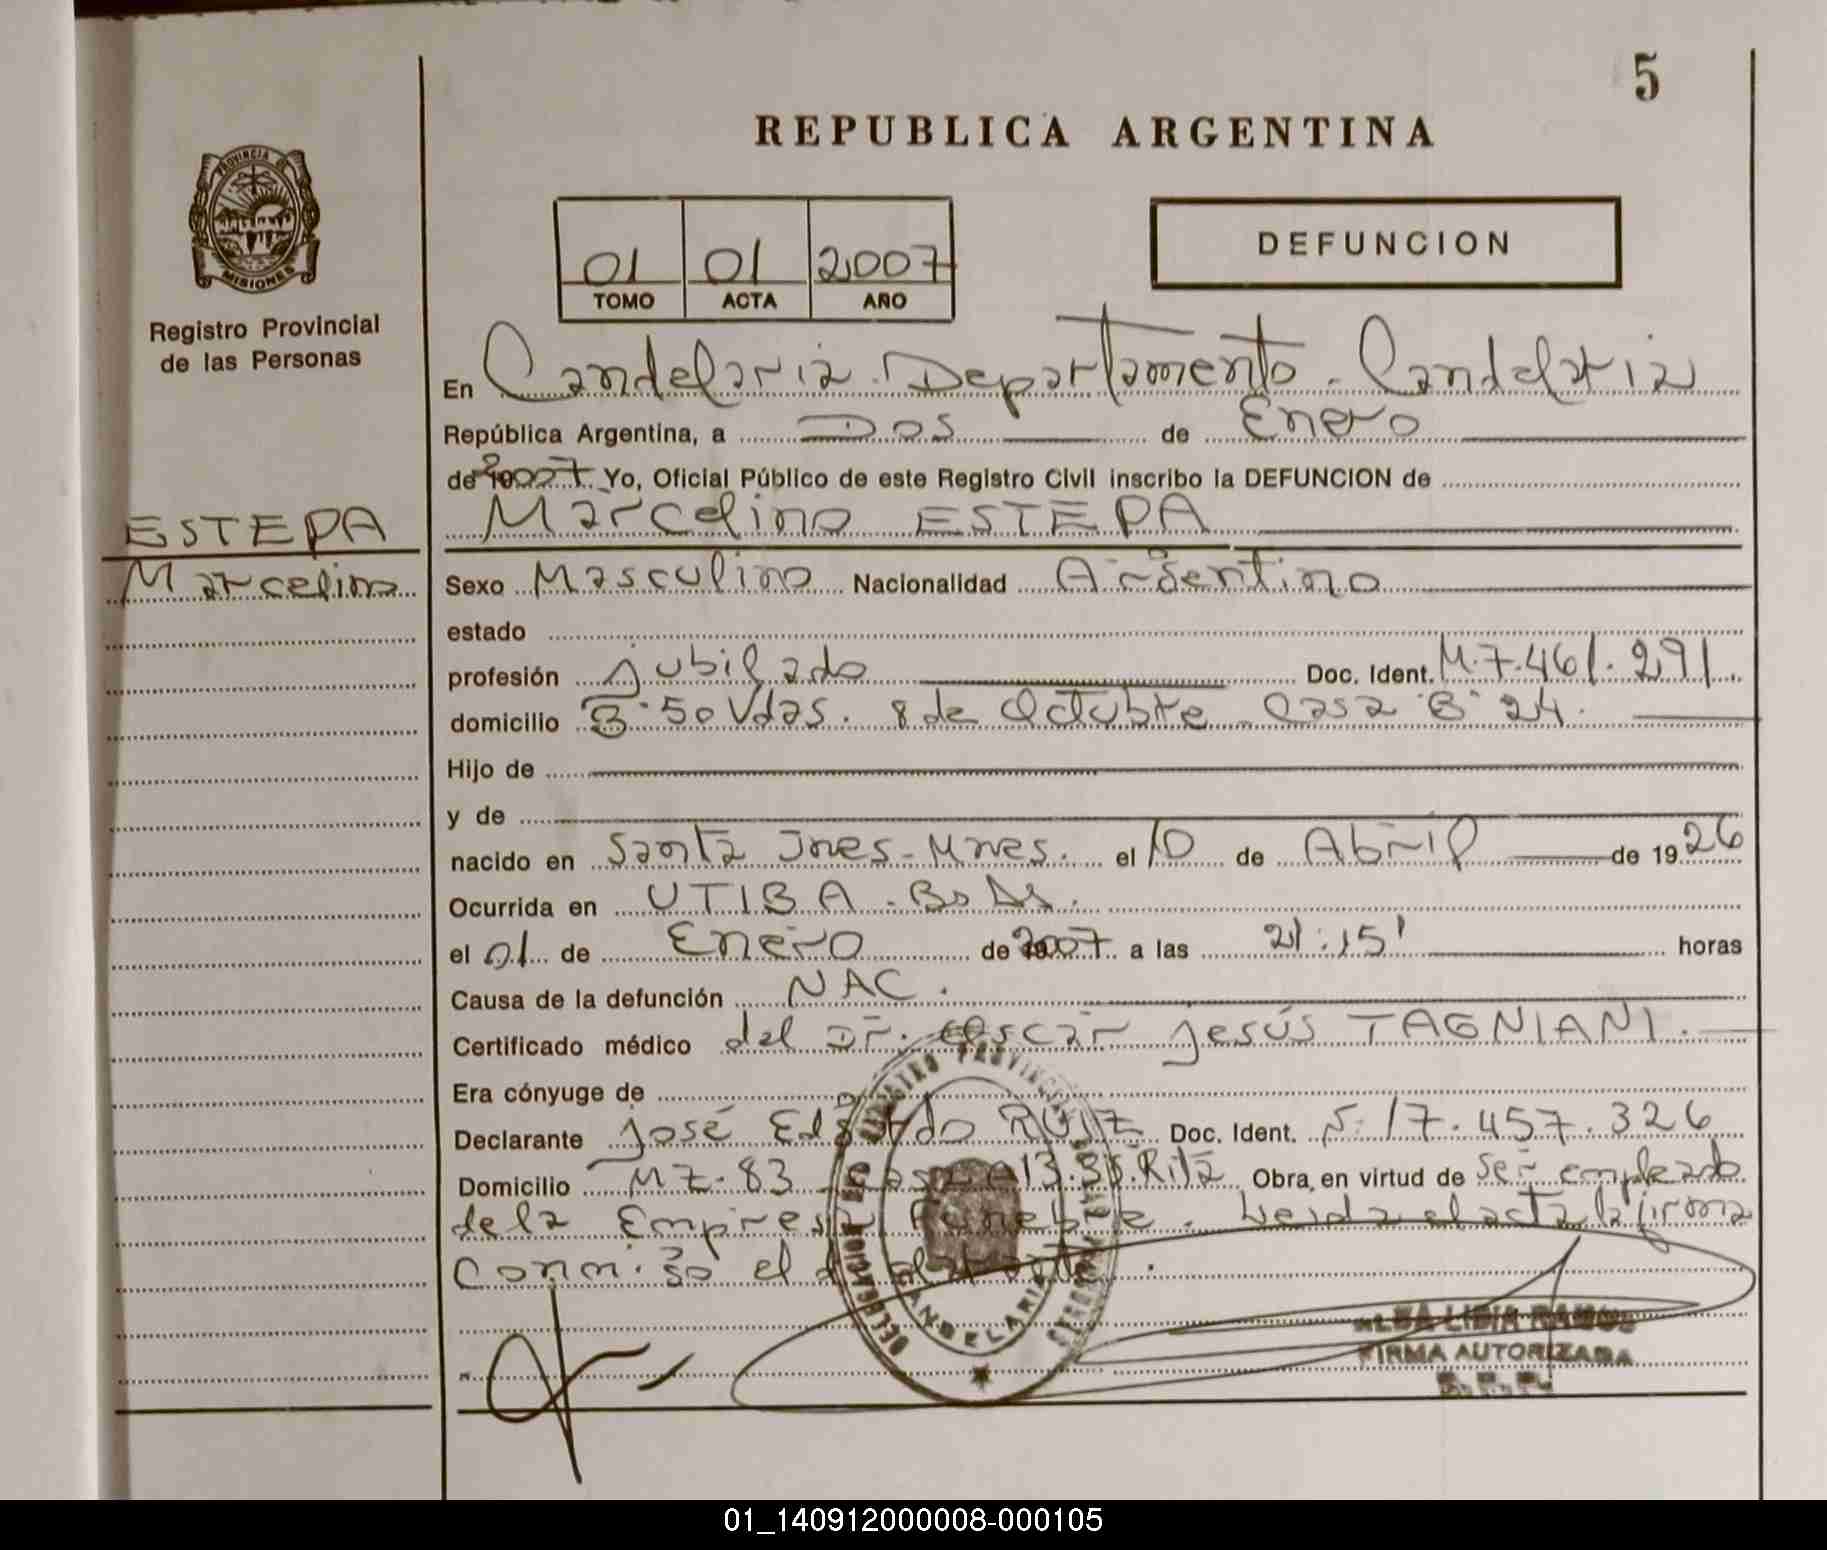 5
REPUBLICA ARGENTINA
PROVINCIA DE
MISIONES
Registro Provincial
de las Personas
01 01 2007
TOMO ACTA AÑO
DEFUNCION
En Candelaria. Departamento. Candelaria
República Argentina, a Dos de Enero
de 2007 Yo, Oficial Público de este Registro Civil inscribo la DEFUNCION de
ESTEPA
Marcelino
Marcelino ESTEPA
Sexo Masculino Nacionalidad Argentino
estado
profesión jubilado Doc. Ident. M.7.461.291.
domicilio B° 50 Vdas. 8 de Octubre. Casa B° 24.
Hijo de
y de
nacido en Santa Ines - Mnes. el 10 de Abril de 1926
Ocurrida en UTIBA. Bs As.
el 01 de Enero de 2007 a las 21:15' horas
Causa de la defunción NAC.
Certificado médico del Dr. Oscar Jesús TAGNIANI.
Era cónyuge de
Declarante José Eduardo RUIZ Doc. Ident. 17.457.326
Domicilio MZ. 83 casa 13. Rita Obra, en virtud de Ser empleado
de la Empresa Funebre. Leida el acta la firma
conmigo el declarante.
CANDELARIA
ALBA LIDIA RAMOS
FIRMA AUTORIZADA
01_140912000008-000105